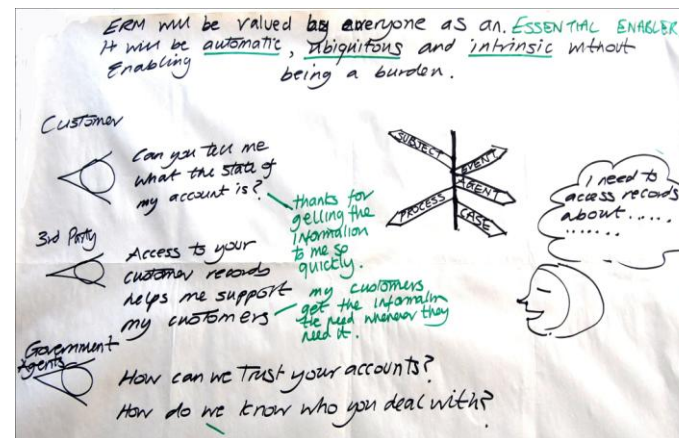 ERM will be valued by everyone as an ESSENTIAL ENABLER
It will be automatic, ubiquitous and intrinsic without
Enabling being a burden.
Customer
Can you tell me
what the state of
my account is?
thanks for
getting the
information
to me so
quickly.
3rd Party
Access to your
customer records
helps me support
my customers
my customers
get the information
the need whenever they
need it.
Government
Agents
How can we Trust your accounts?
How do we know who you deal with?
SUBJECT
EVENT
AGENT
PROCESS
CASE
I need to
access records
about.....
.......